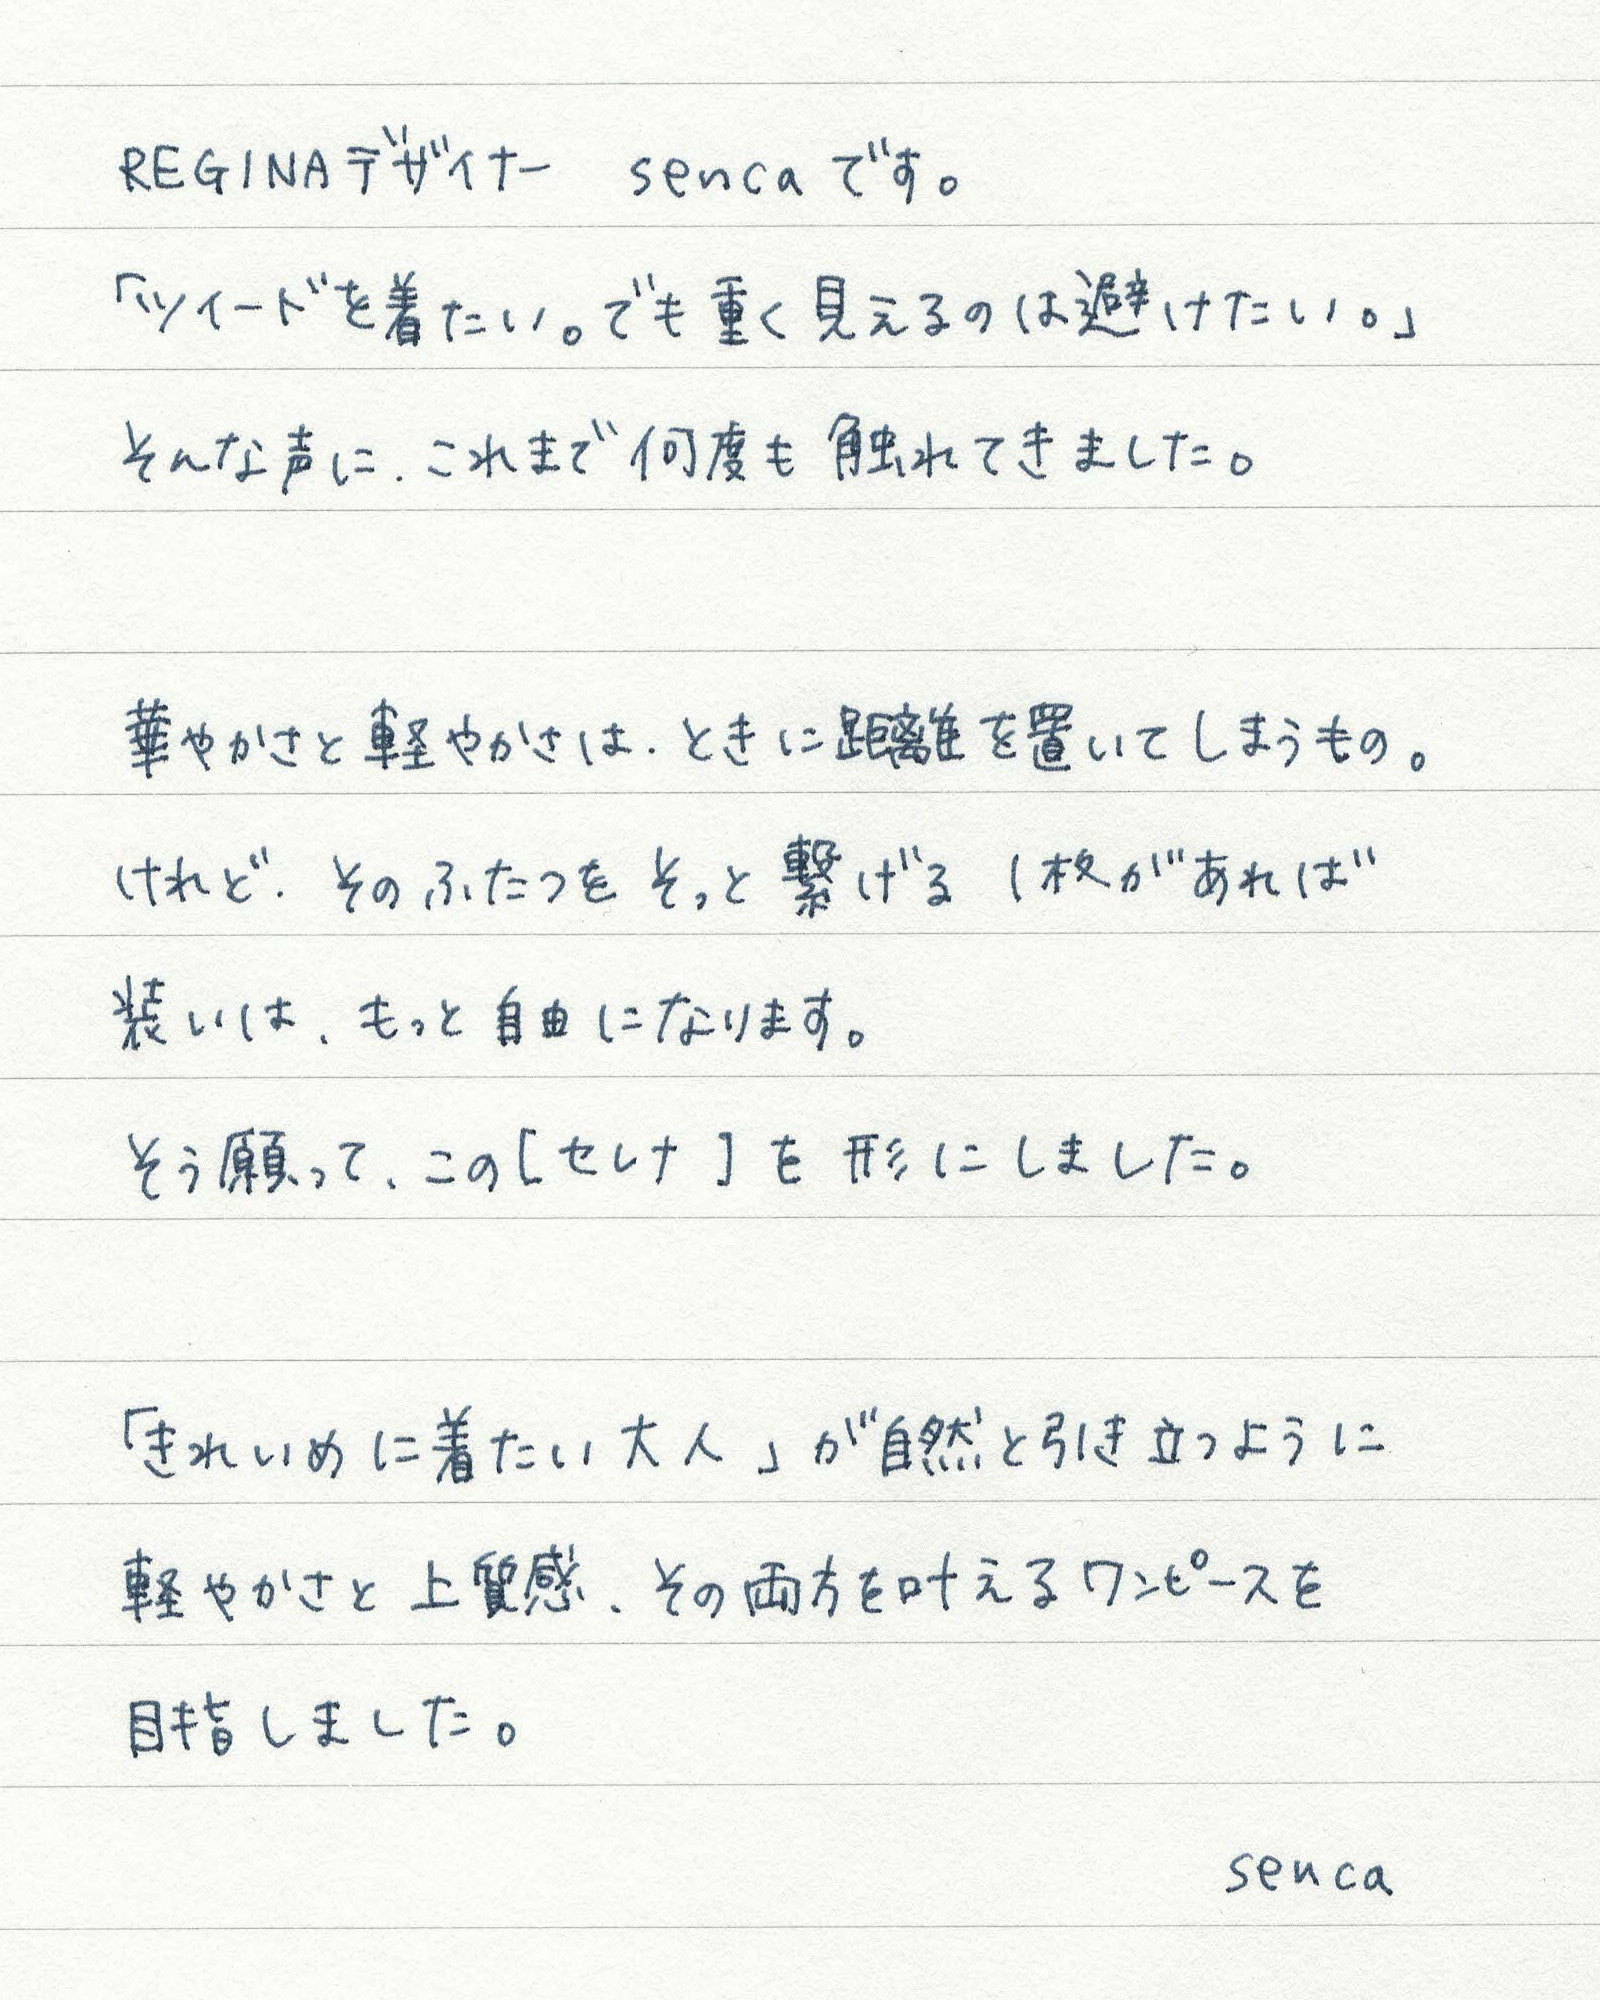 REGINAデザイナー　sencaです。
「ツイードを着たい。でも重く見えるのは避けたい。」
そんな声に、これまで何度も触れてきました。
華やかさと軽やかさは、ときに距離を置いてしまうもの。
けれど、そのふたつをそっと繋げる1枚があれば
装いは、もっと自由になります。
そう願って、この[セレナ]を形にしました。
「きれいめに着たい大人」が自然と引き立つように
軽やかさと上質感、その両方を叶えるワンピースを
目指しました。
senca